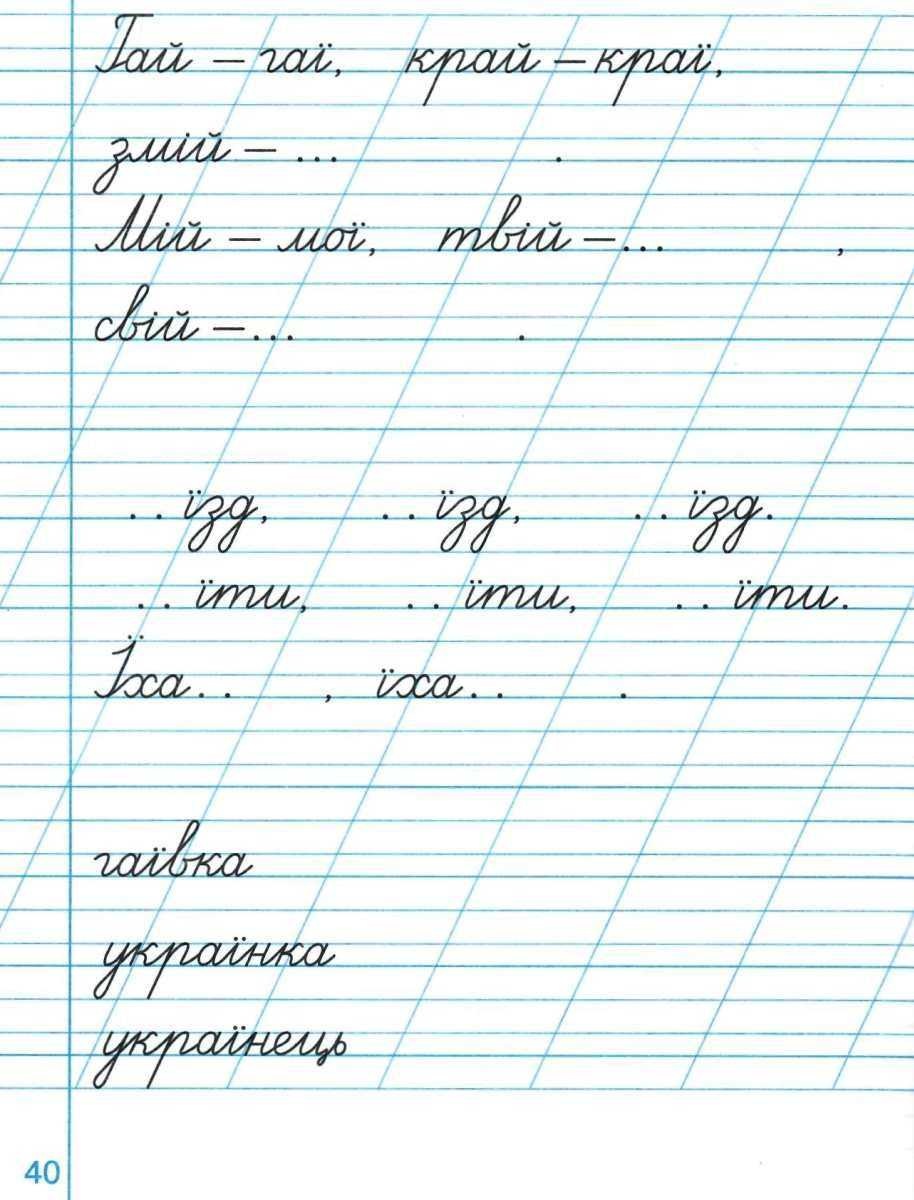 Гай – гаї, край – краї,
змій – ... .
Мій – мої, твій – ... ,
свій – ... .
. . їзд, . . їзд, . . їзд.
. . їти, . . їти, . . їти.
Їха . . , їха . . .
гаївка
українка
українець
40